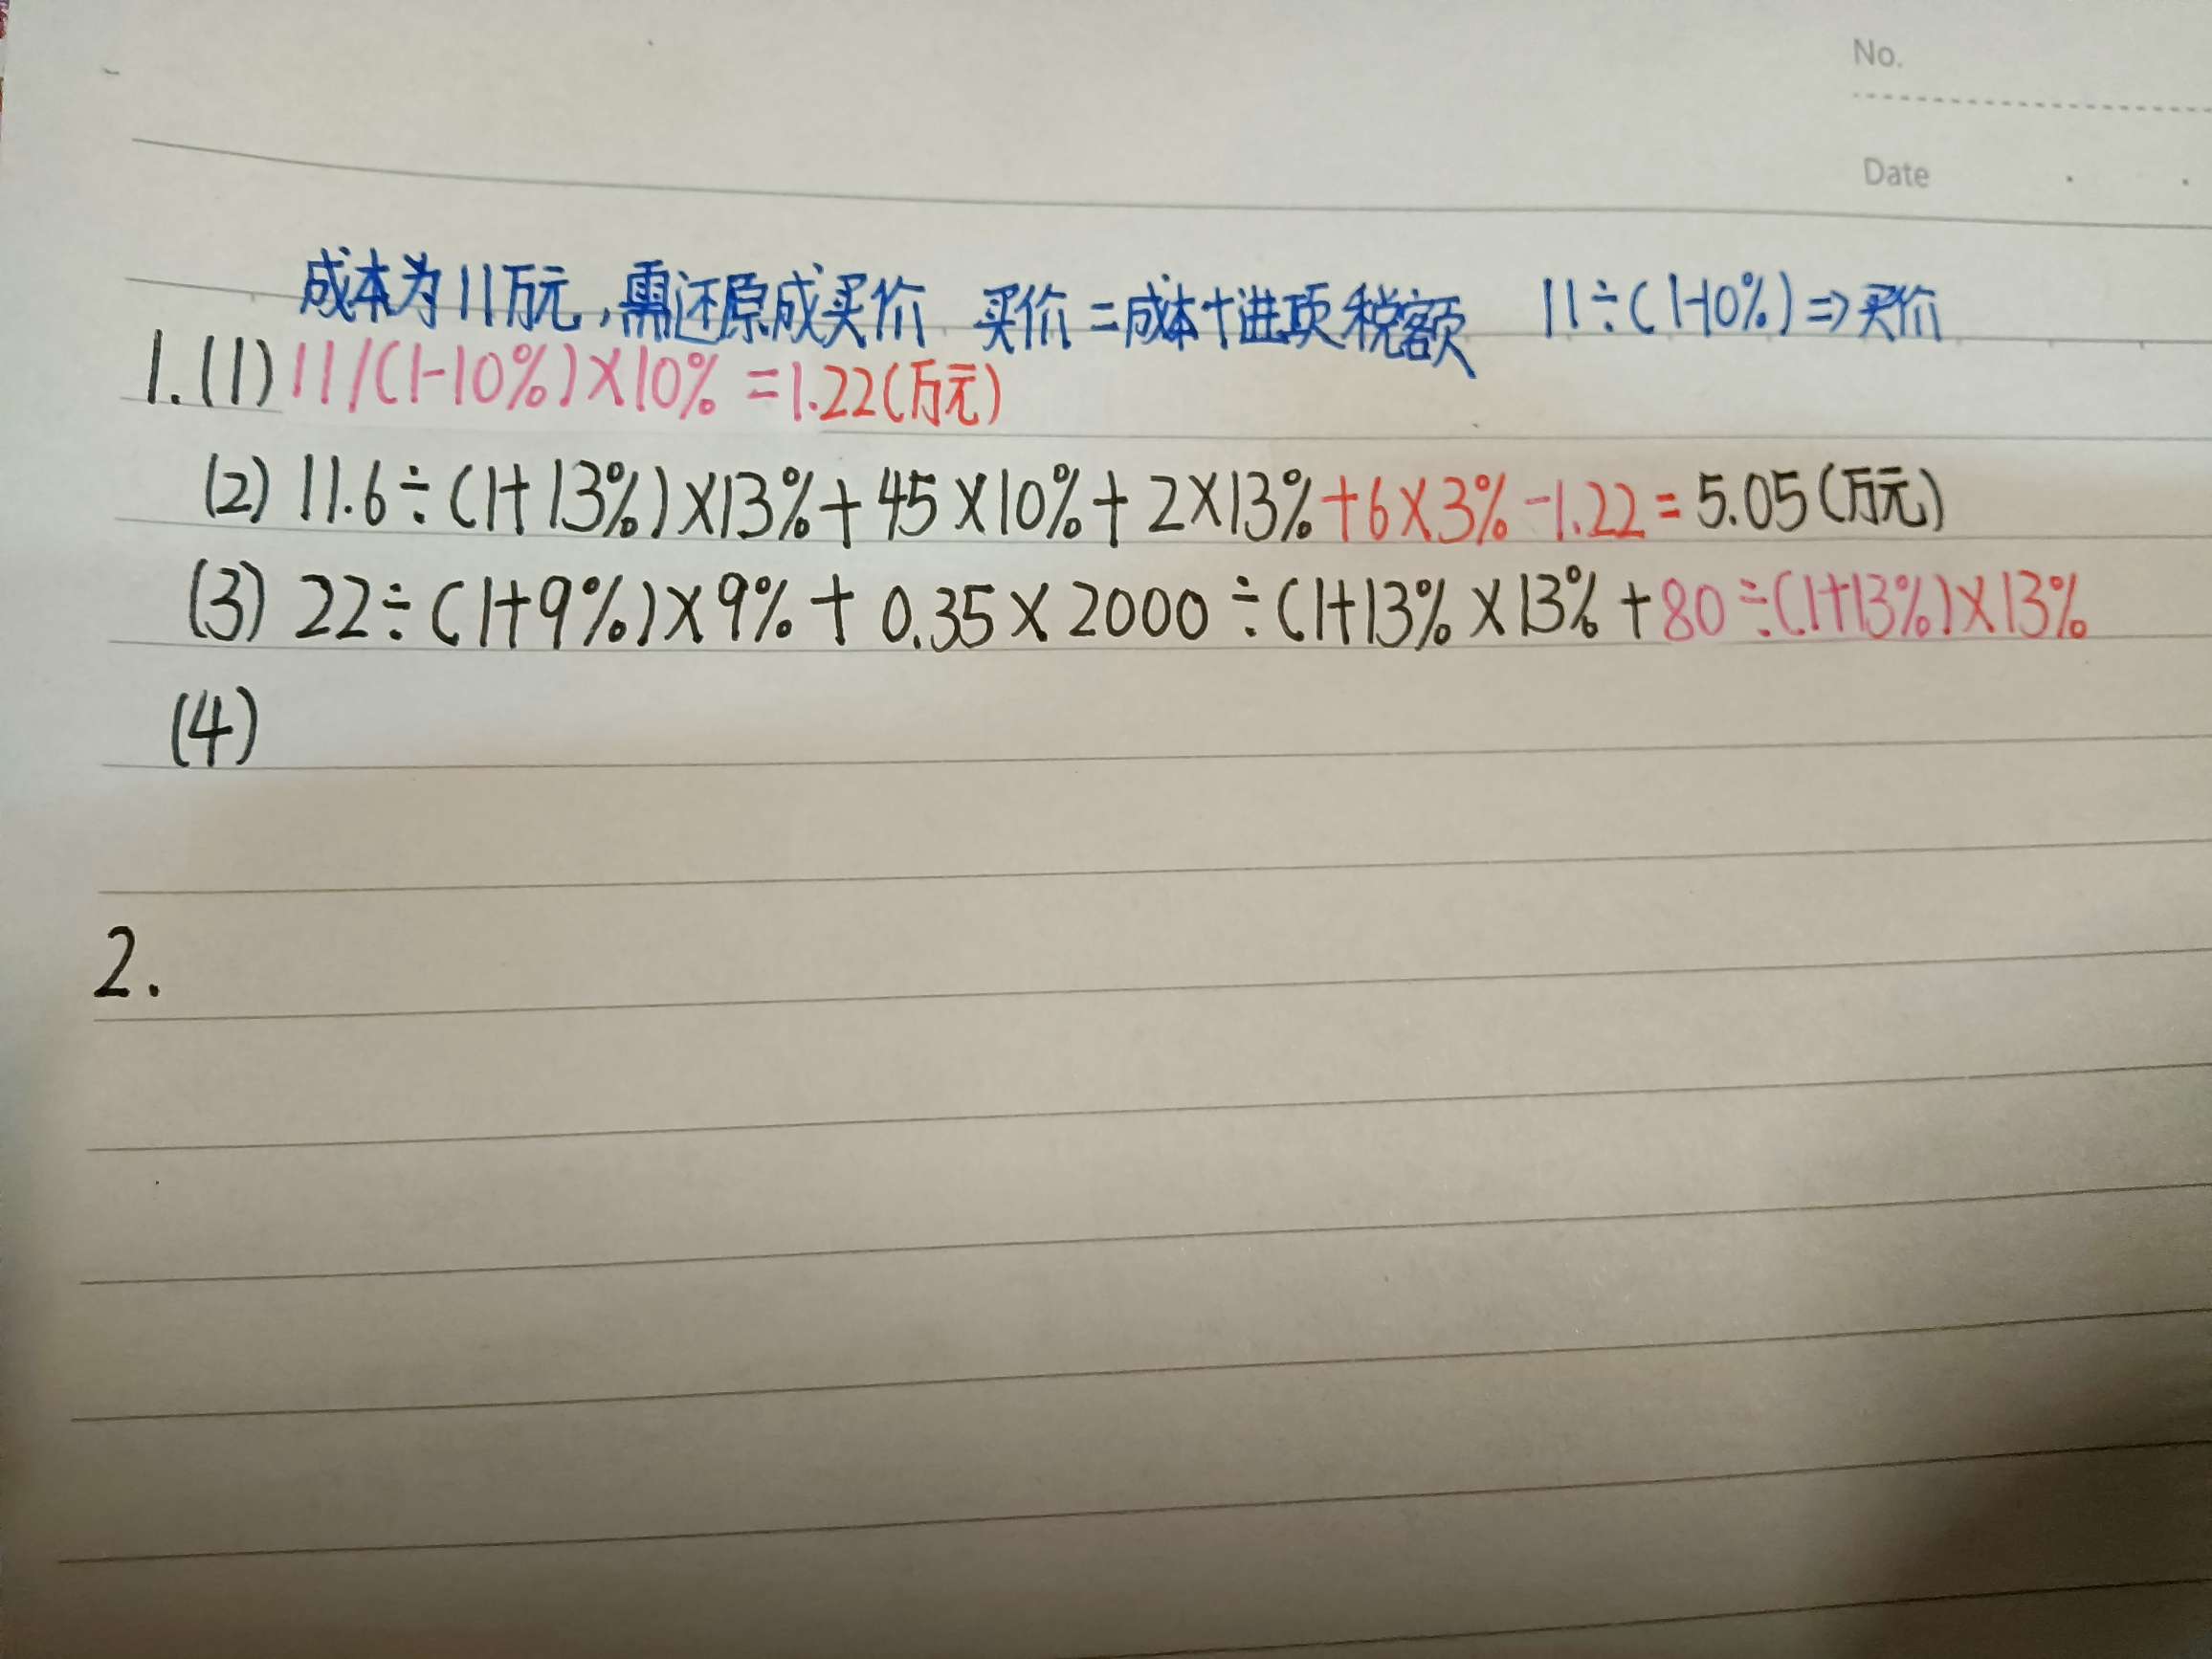 No.
Date
成本为11万元,需还原成买价 买价=成本+进项税额 11÷(1-10%)⇒买价
1.(1)11/(1-10%)×10%=1.22(万元)
(2)11.6÷(1+13%)×13%+45×10%+2×13%+6×3%-1.22=5.05(万元)
(3)22÷(1+9%)×9%+0.35×2000÷(1+13%×13%+80÷(1+13%)×13%
(4)
2.